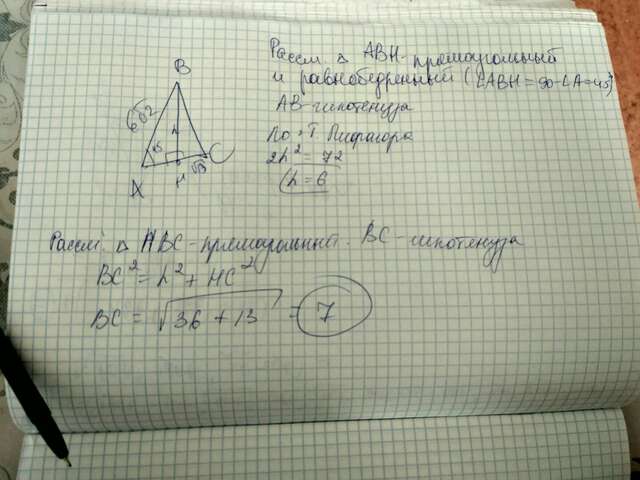 Рассм △ ABH - прямоугольный
и равнобедренный (∠ABH = 90-∠A=45°)
AB-гипотенуза
По т. Пифагора
2h² = 72
h = 6
B
6√2
h
45
A
H
√13
C
Рассм △ HBC - прямоугольный. BC - гипотенуза
BC² = h² + HC²
BC = √36 + 13 = 7